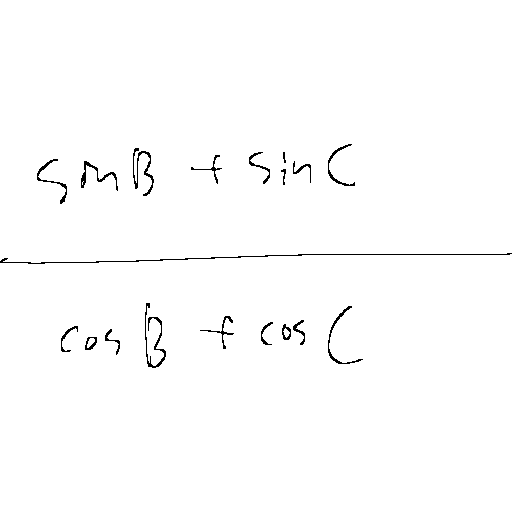 sinB + sin C
cos B + cos C